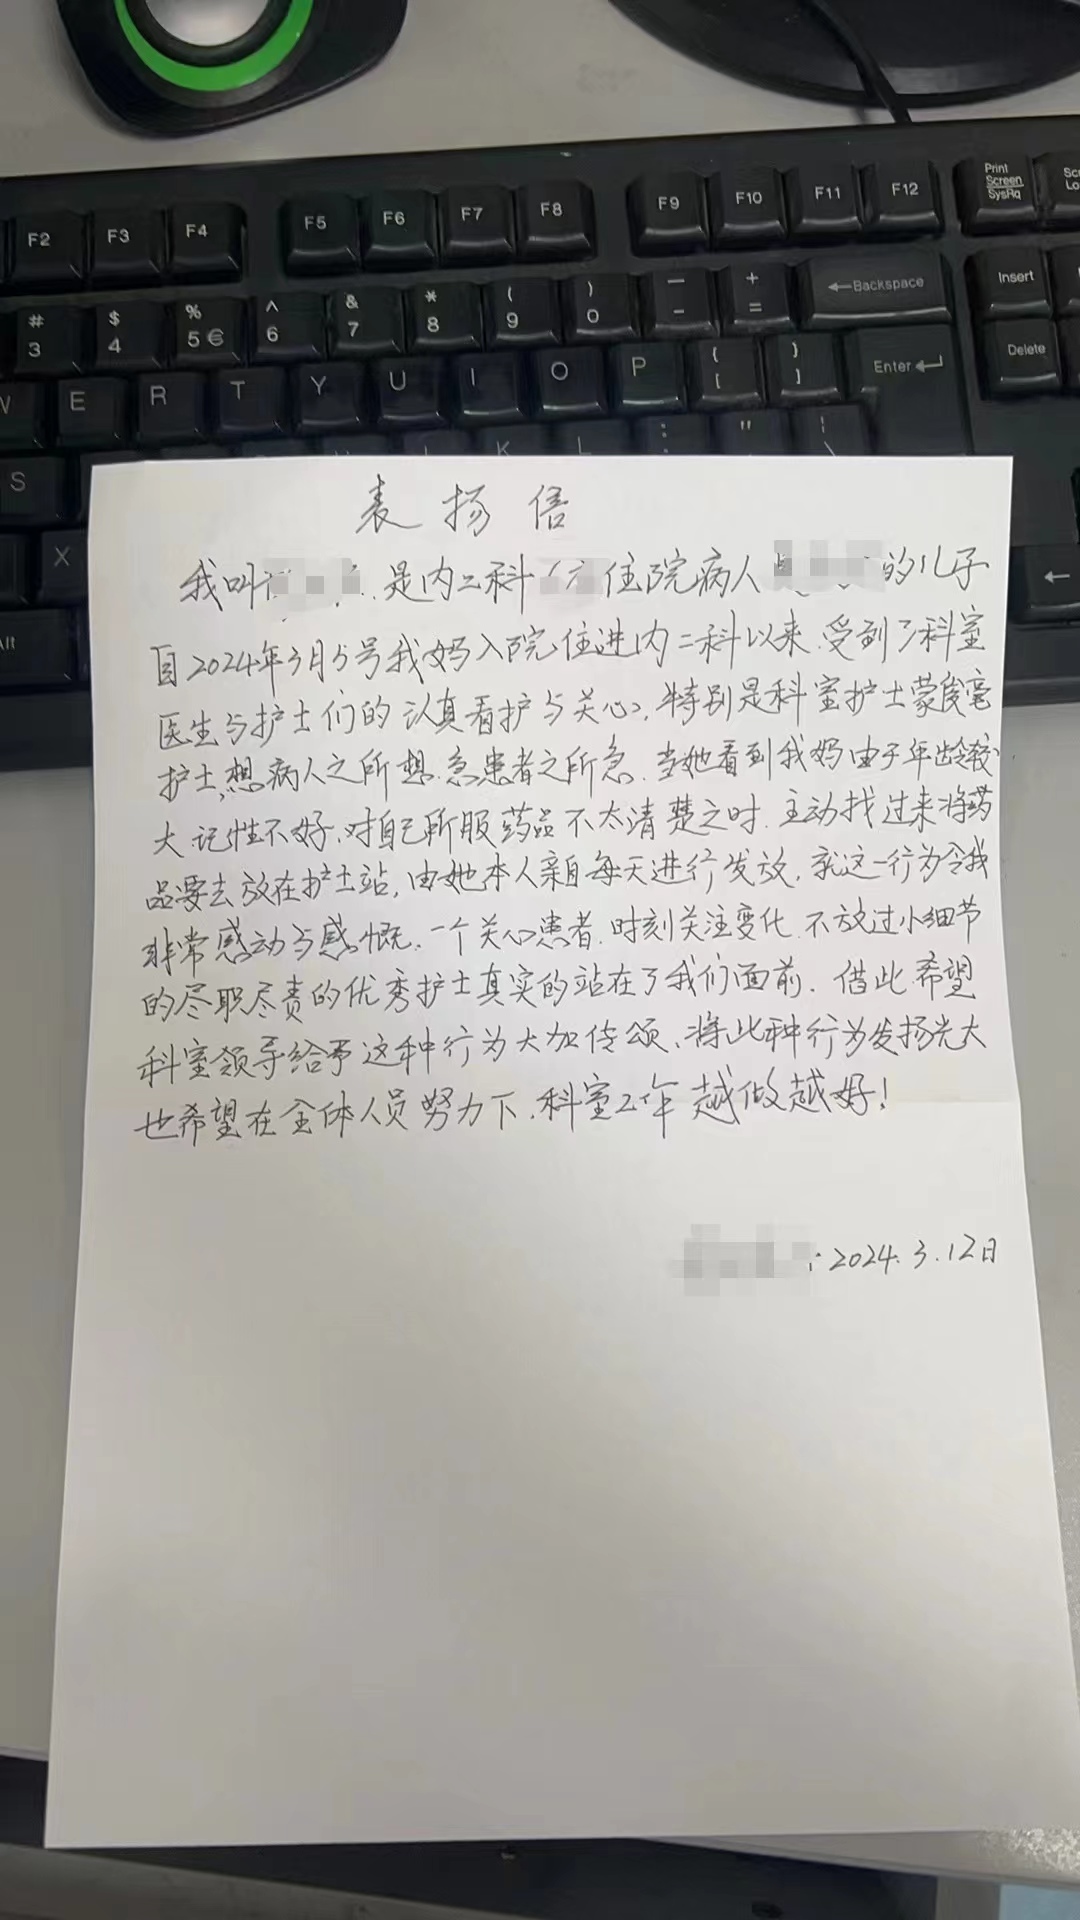 F2 F3 F4 F5 F6 F7 F8 F9 F10 F11 F12 Print Screen SysRq
# 3 $ 4 % 5 € ^ 6 & 7 * 8 ( 9 ) 0 — - + = ←Backspace Insert
E R T Y U I O P { [ } ] Enter Delete
S K L : " | \
X ←
Alt
表扬信
我叫 是内二科 住院病人 的儿子
自2024年3月5号我妈入院住进内二科以来.受到了科室
医生与护士们的认真看护与关心,特别是科室护士蒙俊毫
护士,想病人之所想.急患者之所急.当她看到我妈由于年龄较
大.记性不好,对自己所服药品不太清楚之时.主动找过来将药
品要去放在护士站,由她本人亲自每天进行发放,就这一行为令我
非常感动与感慨.一个关心患者.时刻关注变化.不放过小细节
的尽职尽责的优秀护士真实的站在了我们面前.借此希望
科室领导给予这种行为大加传颂.将此种行为发扬光大
也希望在全体人员努力下.科室工作越做越好!
2024.3.12日